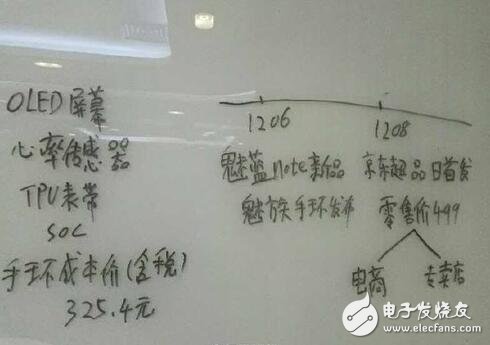 OLED屏幕
心率传感器
TPU表带
SOC
手环成本价(含税)
325.4元
1206
1208
魅蓝note新品
魅族手环发布
京东超品日首发
零售价499
电商
专卖店
电子发烧友
www.elecfans.com